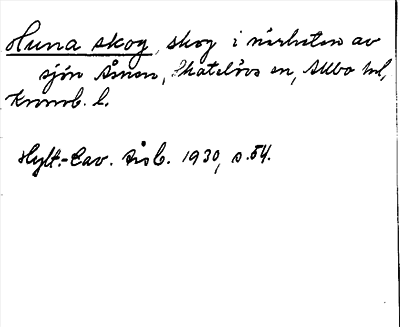 Huna skog, skog i närheten av
sjön Åsnen, Skatelövs sn, Allbo hd,
Kronob. l.
Hylt.-Cav. Årsb. 1930, s. 54.